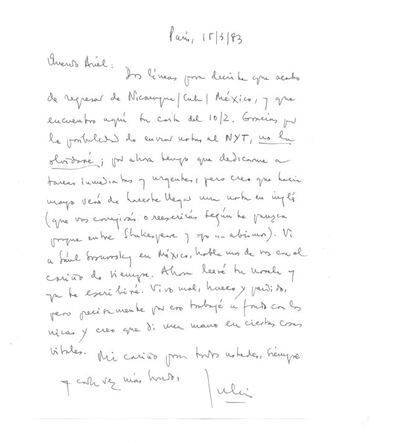 París, 15/3/83
Querido Ariel:
Dos líneas para decirte que acabo
de regresar de Nicaragua/Cuba/México, y que
encuentro aquí tu carta del 10/2. Gracias por
la posibilidad de enviar notas al NYT, no lo
olvidaré; por ahora tengo que dedicarme a
tareas inmediatas y urgentes, pero creo que hacia
mayo veré de hacerte llegar una nota en inglés
(que vos corregirás o reescribirás según te parezca
porque entre Shakespeare y yo un abismo). Vi
a Saúl Sosnowsky en México, hablamos de vos con el
cariño de siempre. Ahora leeré tu novela y
ya te escribiré. Vivo mal, hueco y perdido,
pero precisamente por eso trabajé a fondo con los
nicas y creo que di una mano en ciertas cosas
vitales. Mi cariño para todos ustedes, siempre
y cada vez más hondo,
Julio